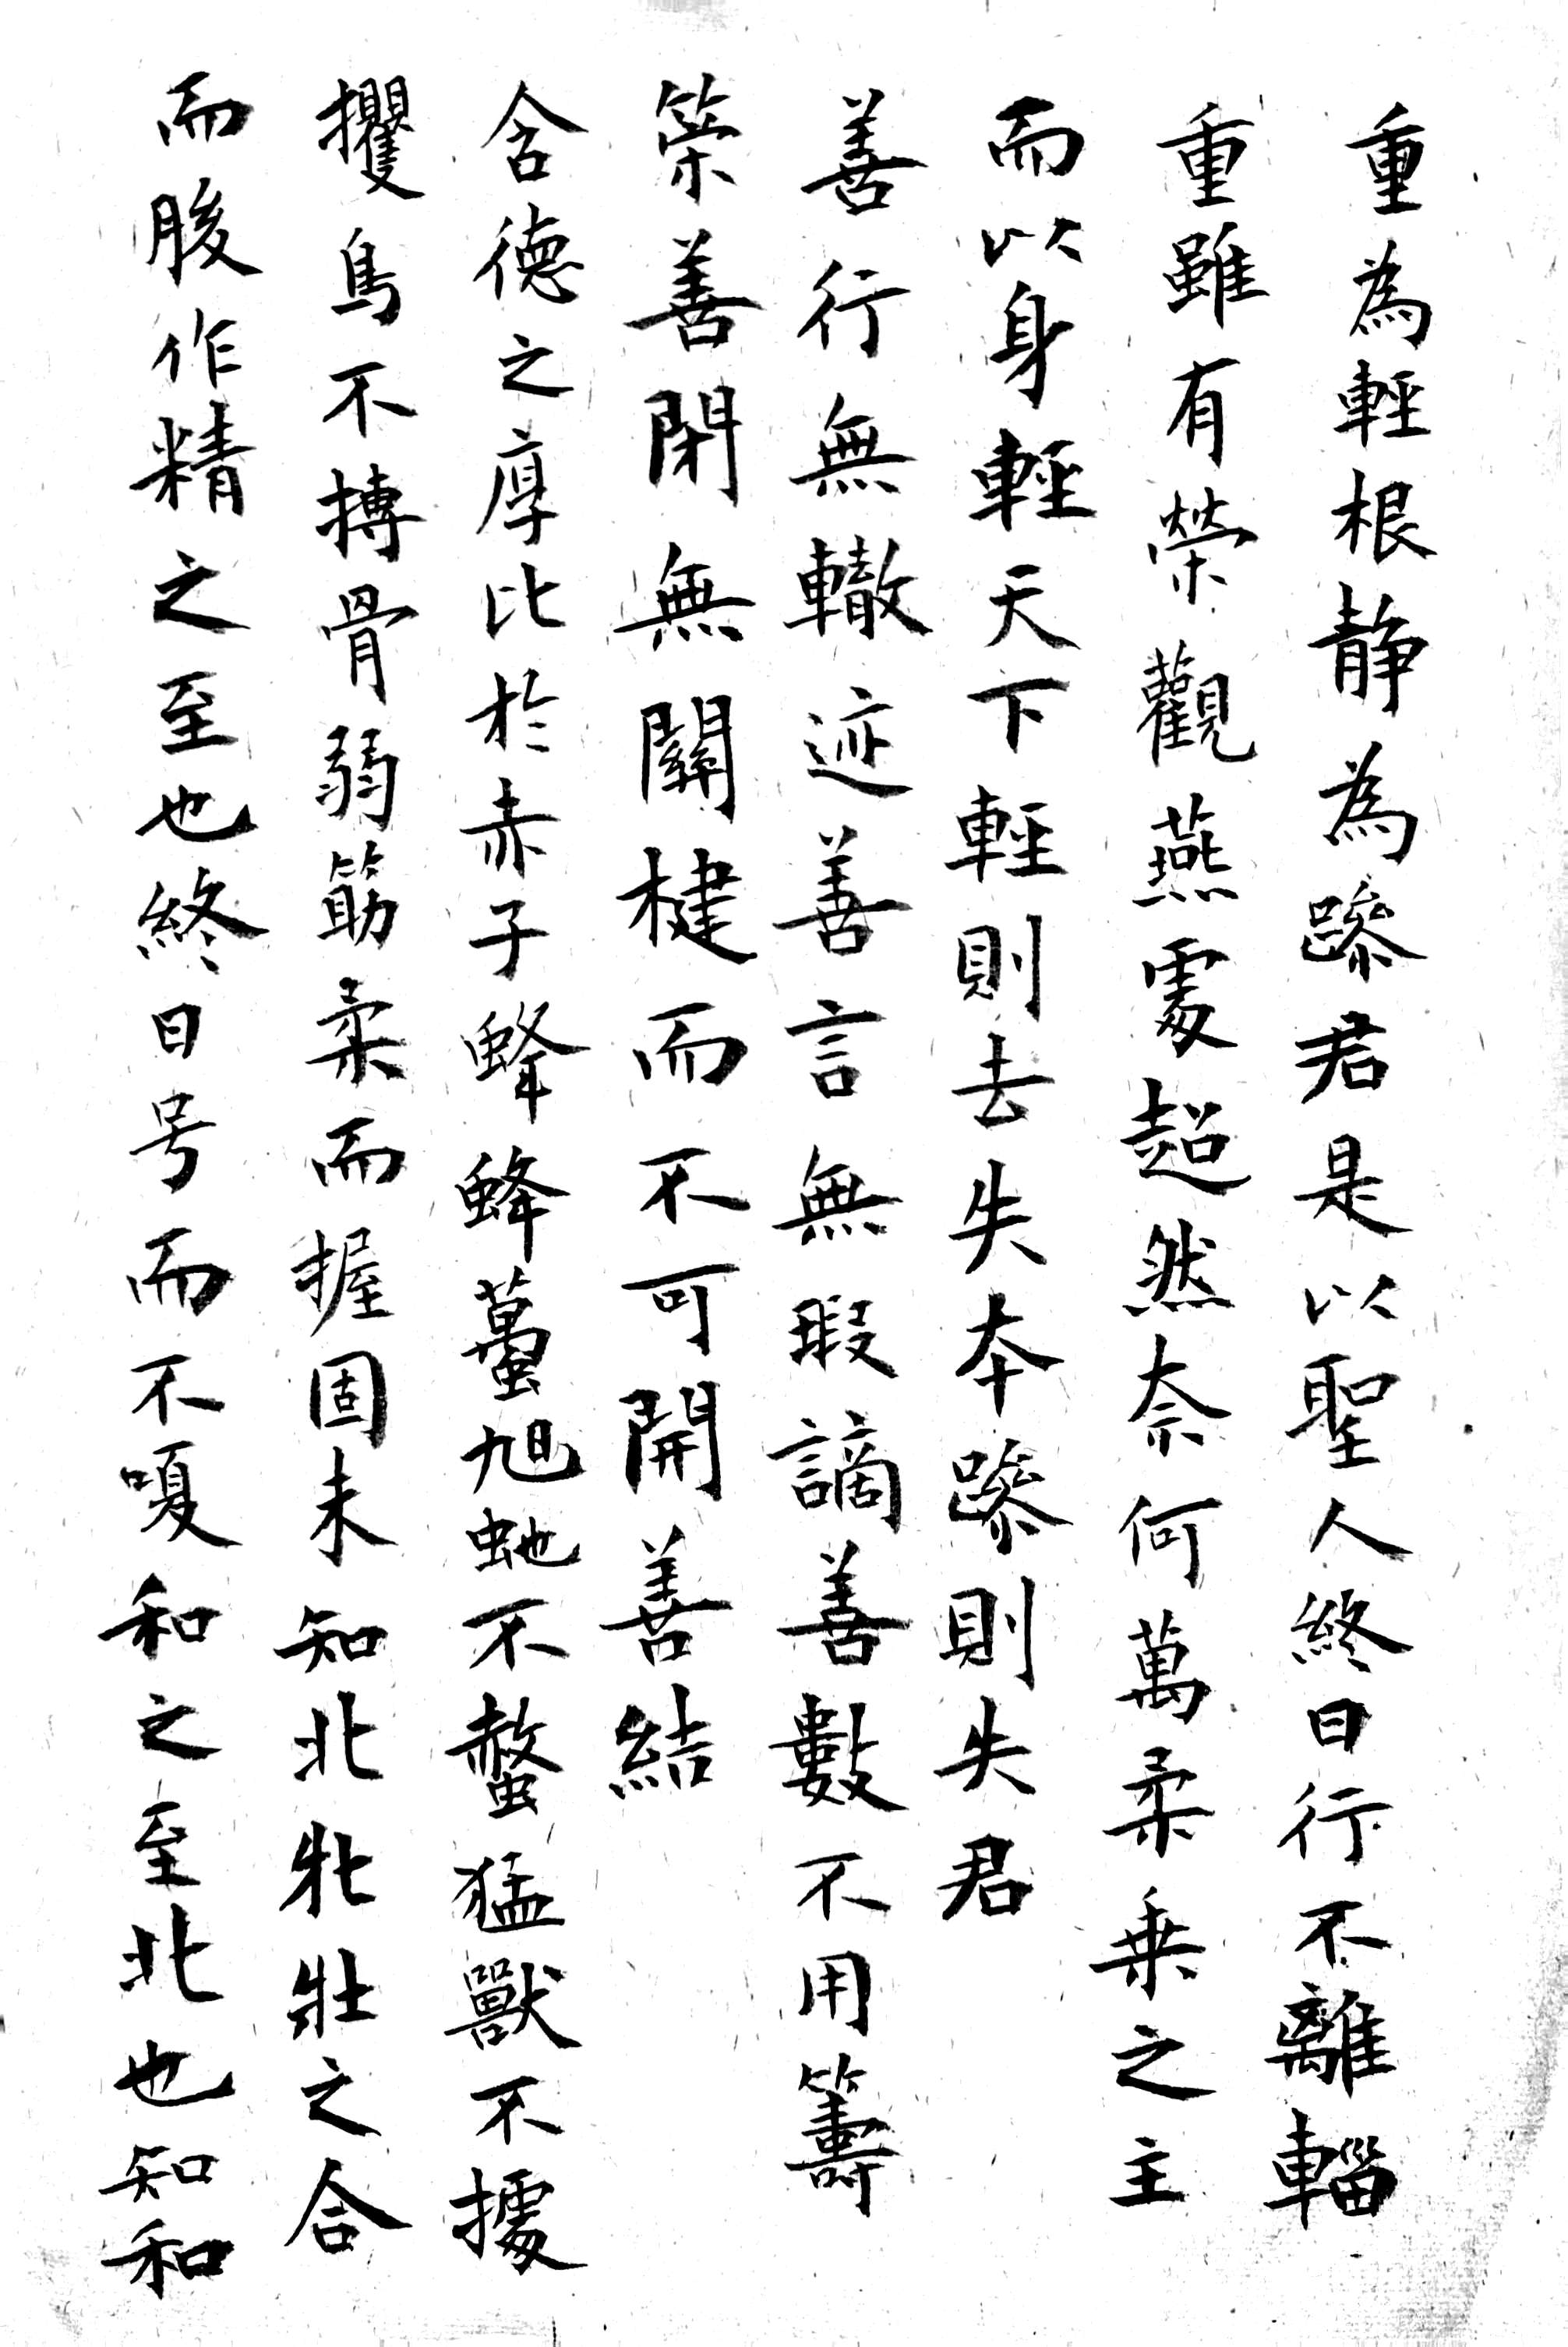 重為輕根静為躁君是以聖人終日行不離輜
重雖有榮觀燕處超然奈何萬柔乗之主
而以身輕天下輕則去失本躁則失君
善行無轍迹善言無瑕謫善數不用籌
策善閉無關楗而不可開善結
含德之厚比於赤子蜂蜂蠆旭虵不螫猛獸不據
攫鳥不搏骨弱筋柔而握固未知北牝壯之合
而朘作精之至也終日号而不嗄和之至北也知和